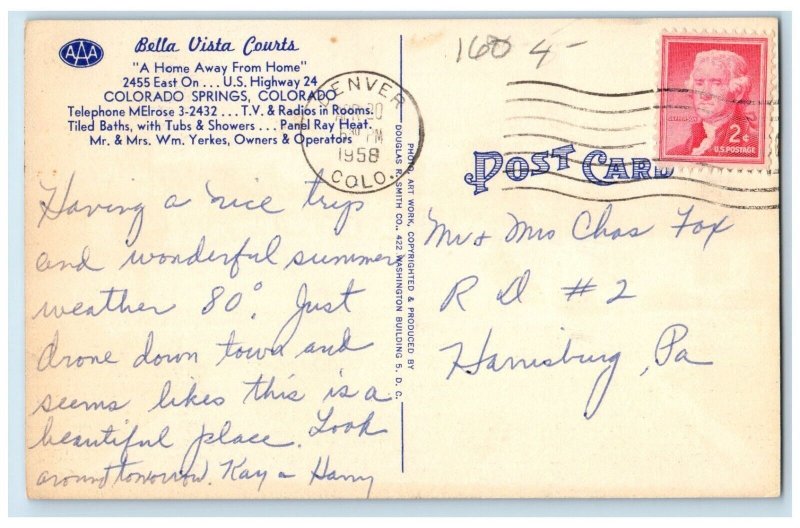 AAA
Bella Vista Courts
"A Home Away From Home"
2455 East On . . . U.S. Highway 24
COLORADO SPRINGS, COLORADO
Telephone MElrose 3-2432 . . . T.V. & Radios in Rooms.
Tiled Baths, with Tubs & Showers . . . Panel Ray Heat.
Mr. & Mrs. Wm. Yerkes, Owners & Operators
DENVER
20
PM
1958
COLO.
160 4-
JEFFERSON
2¢
U.S. POSTAGE
POST CARD
PHOTO, ART WORK, COPYRIGHTED & PRODUCED BY
DOUGLAS R. SMITH CO., 422 WASHINGTON BUILDING 5, D. C.
Having a nice trip
and wonderful summer
weather 80°. Just
drone down town and
seems likes this is a
beautiful place. Look
around tomorrow. Kay & Harry
Mr & Mrs Chas Fox
R D #2
Harrisburg, Pa